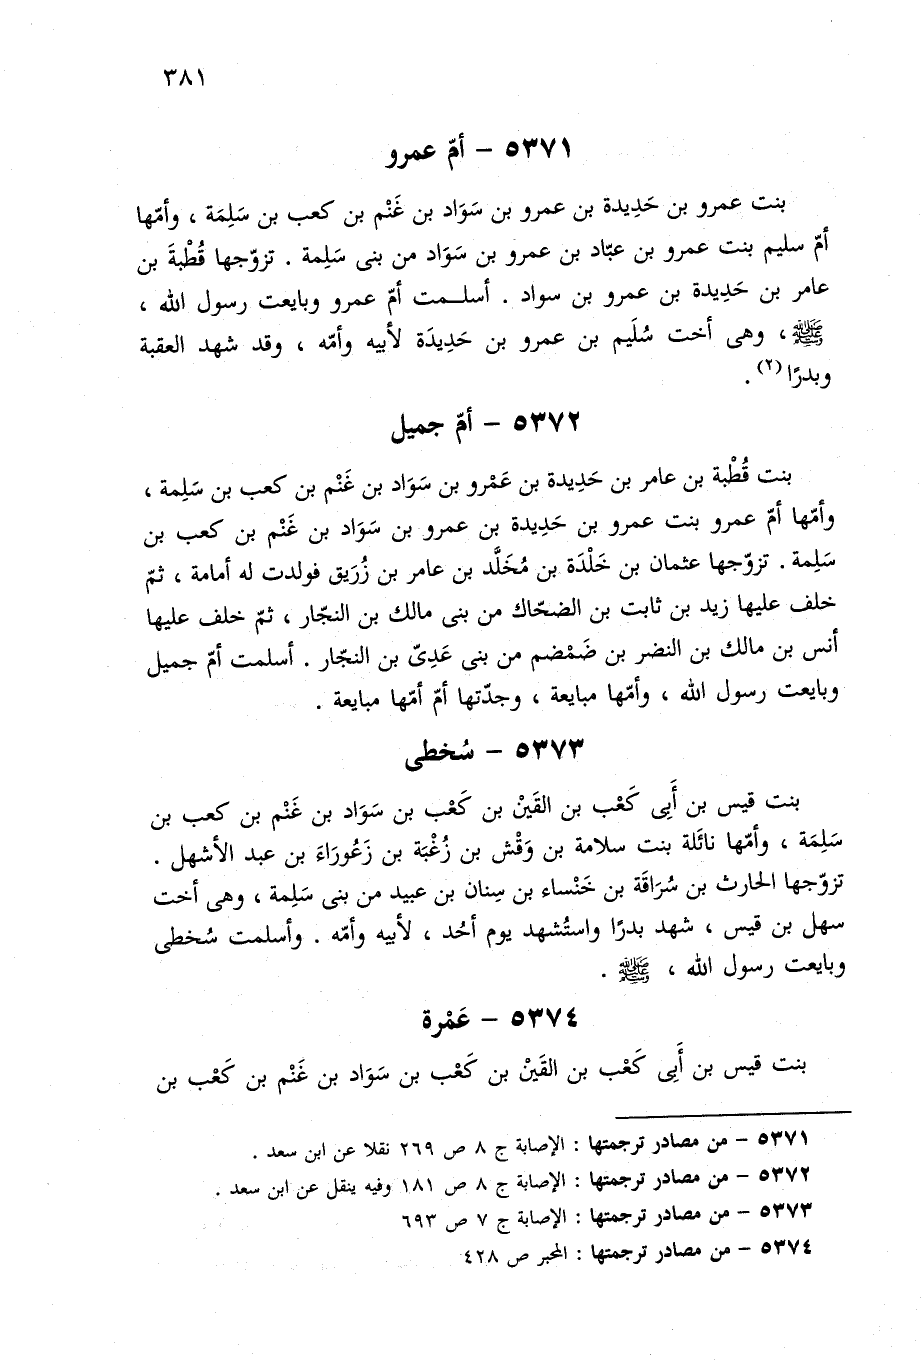 ٣٨١
٥٣٧١ – أمّ عمرو
بنت عمرو بن حَدِيدة بن عمرو بن سَوَاد بن غَنْم بن كعب بن سَلِمَة ، وأمّها
أمّ سليم بنت عمرو بن عبّاد بن عمرو بن سَوَاد من بنى سَلِمة . تزوّجها قُطْبةَ بن
عامر بن حَدِيدة بن عمرو بن سواد . أسلـمت أمّ عمرو وبايعت رسول الله ،
ﷺ ، وهى أخت سُلَيم بن عمرو بن حَدِيدَة لأبيه وأمّه ، وقد شهد العقبة
وبدرًا (٢) .
٥٣٧٢ – أمّ جميل
بنت قُطْبة بن عامر بن حَدِيدة بن عَمْرو بن سَوَاد بن غَنْم بن كعب بن سَلِمة ،
وأمّها أمّ عمرو بنت عمرو بن حَدِيدة بن عمرو بن سَوَاد بن غَنْم بن كعب بن
سَلِمة . تزوّجها عثمان بن خَلْدَة بن مُخَلَّد بن عامر بن زُرَيق فولدت له أمامة ، ثمّ
خلف عليها زيد بن ثابت بن الضحّاك من بنى مالك بن النجّار ، ثمّ خلف عليها
أنس بن مالك بن النضر بن ضَمْضم من بنى عَدِىّ بن النجّار . أسلمت أمّ جميل
وبايعت رسول الله ، وأمّها مبايعة ، وجدّتها أمّ أمّها مبايعة .
٥٣٧٣ – سُخطى
بنت قيس بن أَبِى كَعْب بن القَيْنْ بن كَعْب بن سَوَاد بن غَنْم بن كعب بن
سَلِمَة ، وأمّها نائَلة بنت سلامة بن وَقْش بن زُغْبَة بن زَعُورَاءَ بن عبد الأشهل .
تزوّجها الحارث بن سُرَاقَة بن خَنْساء بن سِنان بن عبيد من بنى سَلِمة ، وهى أخت
سهل بن قيس ، شهد بدرًا واستُشهد يوم أحُد ، لأبيه وأمّه . وأسلمت سُخطى
وبايعت رسول الله ، ﷺ .
٥٣٧٤ – عَمْرة
بنت قيس بن أَبِى كَعْب بن القَيْنْ بن كَعْب بن سَوَاد بن غَنْم بن كَعْب بن
٥٣٧١ – من مصادر ترجمتها : الإصابة ج ٨ ص ٢٦٩ نقلا عن ابن سعد .
٥٣٧٢ – من مصادر ترجمتها : الإصابة ج ٨ ص ١٨١ وفيه ينقل عن ابن سعد .
٥٣٧٣ – من مصادر ترجمتها : الإصابة ج ٧ ص ٦٩٣
٥٣٧٤ – من مصادر ترجمتها : المحبر ص ٤٢٨